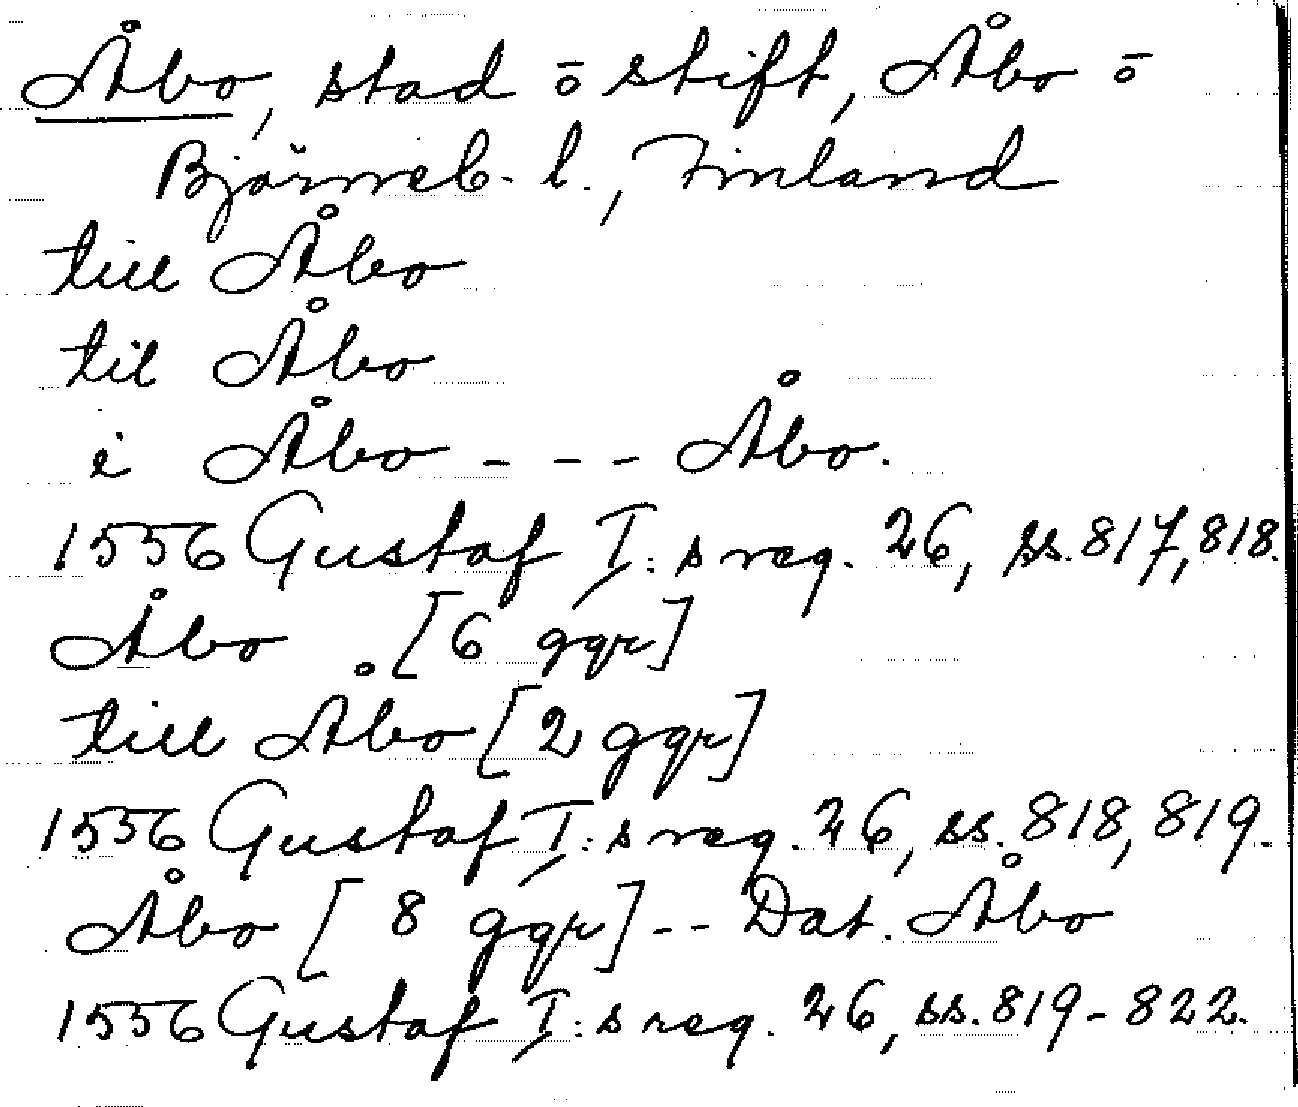 Åbo, stad ō stift, Åbo ō
Björneb. l., Finland
till Åbo
til Åbo
i Åbo - - - Åbo.
1556 Gustaf I:s reg. 26, ss. 817, 818.
Åbo [6 ggr]
till Åbo [2 ggr]
1556 Gustaf I:s reg. 26, ss. 818, 819.
Åbo [8 ggr] - - Dat. Åbo
1556 Gustaf I:s reg. 26, ss. 819-822.